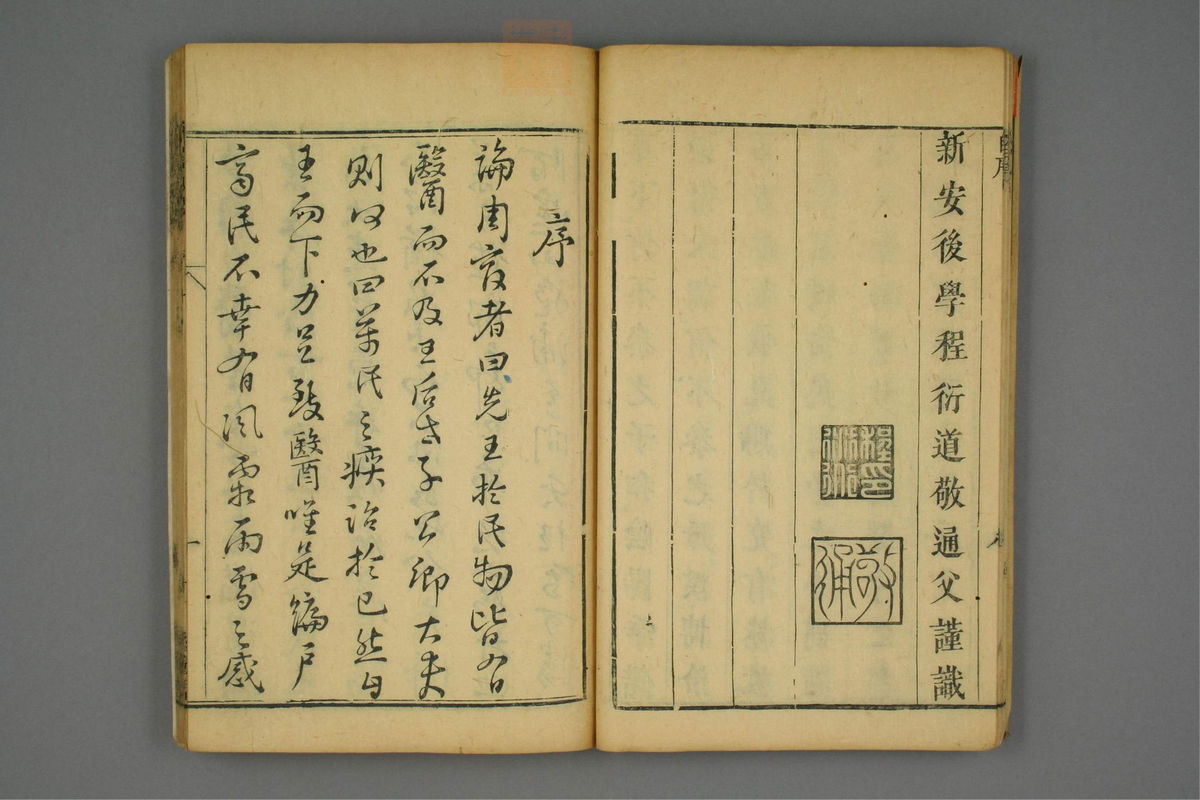 新安後學程衍道敬通父謹識
敬通
序
論周官者曰先王於民物皆有
醫而不及王后世子公卿大夫
則何也曰萬民之疾治於已然自
王而下力足致醫唯是編戶
齊民不幸有風霜雨雪之感